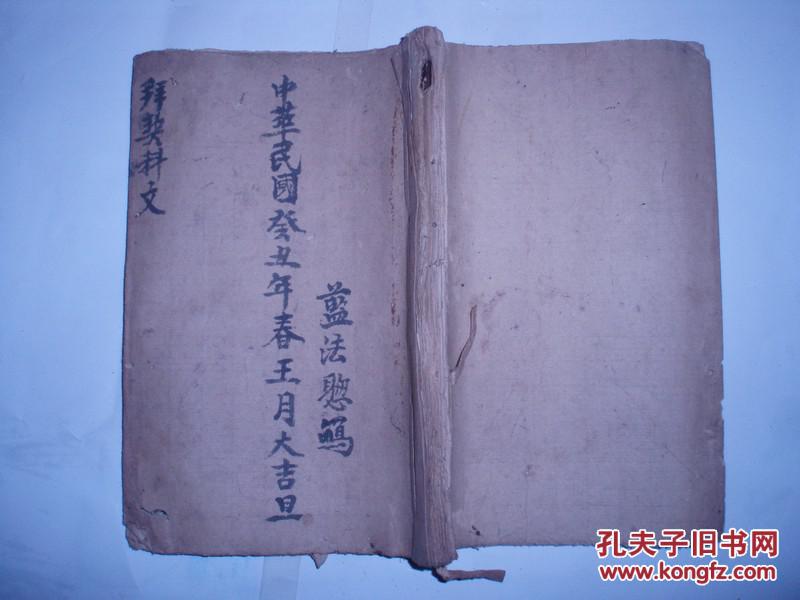 拜契科文
中華民國癸丑年春王月大吉旦
藍法
孔夫子旧书网
www.kongfz.com